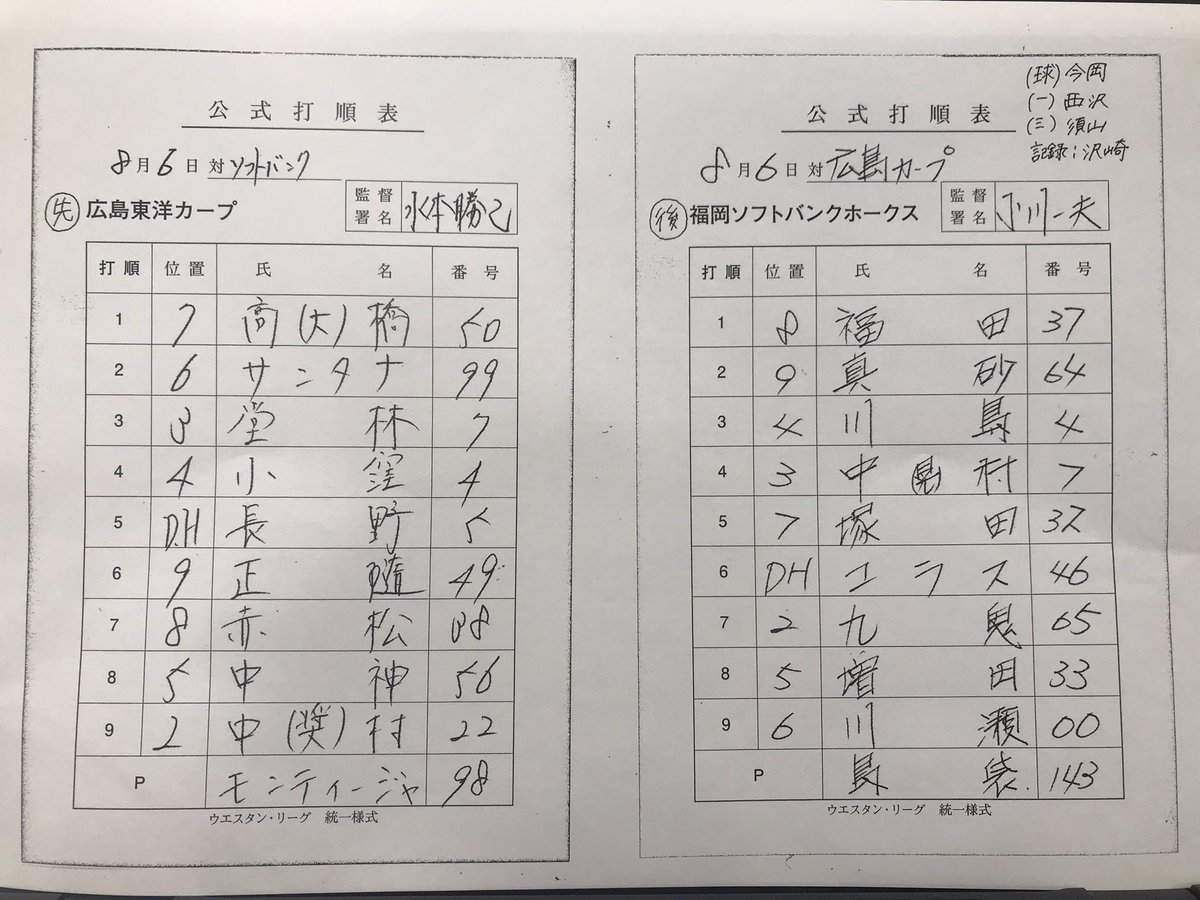 公式打順表
8月6日対ソフトバンク
先 広島東洋カープ 監督署名 水本勝己
打順 位置 氏名 番号
1 7 高(大)橋 50
2 6 サンタナ 99
3 3 堂林 7
4 4 小窪 4
5 DH 長野 5
6 9 正隨 49
7 8 赤松 08
8 5 中神 56
9 2 中(奨)村 22
P モンティージャ 98
ウエスタン・リーグ 統一様式
(球)今岡
(一)西沢
(三)須山
記録:沢崎
公式打順表
8月6日対広島カープ
後 福岡ソフトバンクホークス 監督署名 小川一夫
打順 位置 氏名 番号
1 8 福田 37
2 9 真砂 64
3 4 川島 4
4 3 中(晃)村 7
5 7 塚田 32
6 DH コラス 46
7 2 九鬼 65
8 5 増田 33
9 6 川瀬 00
P 島袋 143
ウエスタン・リーグ 統一様式